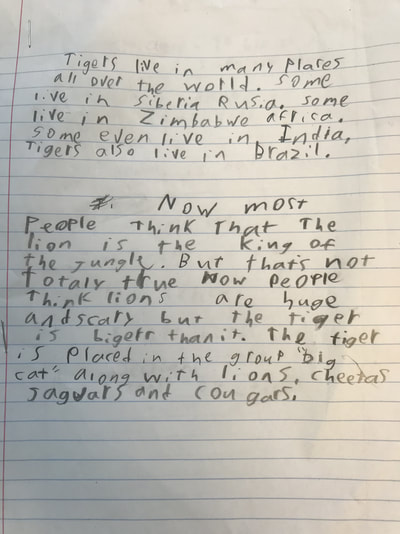 Tigers live in many places
all over the world. Some
live in Siberia Rusia. some
live in Zimbabwe africa.
some even live in India,
Tigers also live in Brazil.
Now most
People think that The
lion is the King of
the jungle. But that's not
Totaly true Now People
Think lions are huge
and scary but the tiger
is bigerr than it. The tiger
is placed in the group "big
cat" along with lions, cheetas
jaguars and cougars.